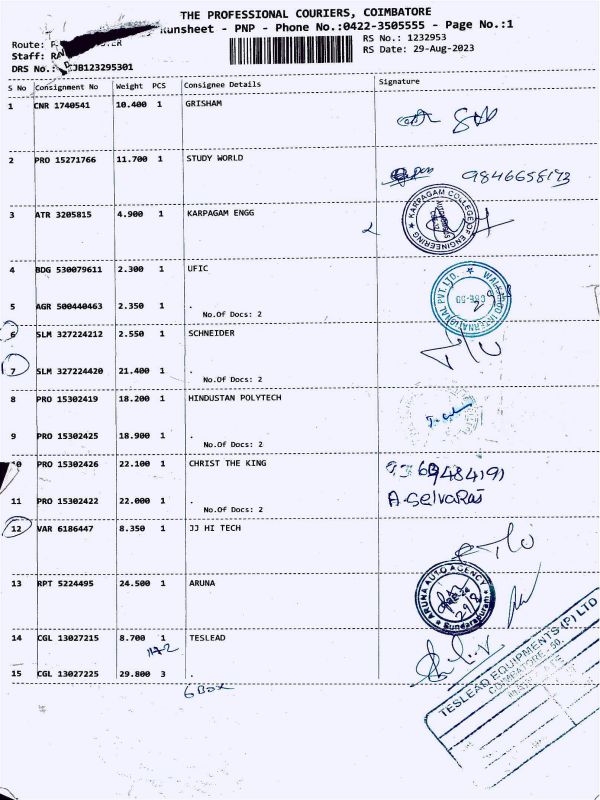 THE PROFESSIONAL COURIERS, COIMBATORE
Runsheet - PNP - Phone No.:0422-3505555 - Page No.:1
Route:
RS No.: 1232953
Staff:
RS Date: 29-Aug-2023
DRS No.: JB123295301
S No Consignment No Weight PCS Consignee Details Signature
1 CNR 1740541 10.400 1 GRISHAM
2 PRO 15271766 11.700 1 STUDY WORLD
9846658173
3 ATR 3205815 4.900 1 KARPAGAM ENGG
KARPAGAM COLLEGE OF ENGINEERING
4 BDG 530079611 2.300 1 UFIC
5 AGR 500440463 2.350 1 .
No.Of Docs: 2
INTERNATIONAL PVT. LTD.
6 SLM 327224212 2.550 1 SCHNEIDER
7 SLM 327224420 21.400 1 .
No.Of Docs: 2
8 PRO 15302419 18.200 1 HINDUSTAN POLYTECH
9 PRO 15302425 18.900 1 .
No.Of Docs: 2
10 PRO 15302426 22.100 1 CHRIST THE KING
11 PRO 15302422 22.000 1 .
A. Selvaraj
No.Of Docs: 2
12 VAR 6186447 8.350 1 JJ HI TECH
13 RPT 5224495 24.500 1 ARUNA
ARUNA AUTO AGENCY
29/8
Sundarapuram
14 CGL 13027215 8.700 1 TESLEAD
15 CGL 13027225 29.800 3 .
6 Box
TESLEAD EQUIPMENTS (P) LTD
COIMBATORE - 50.